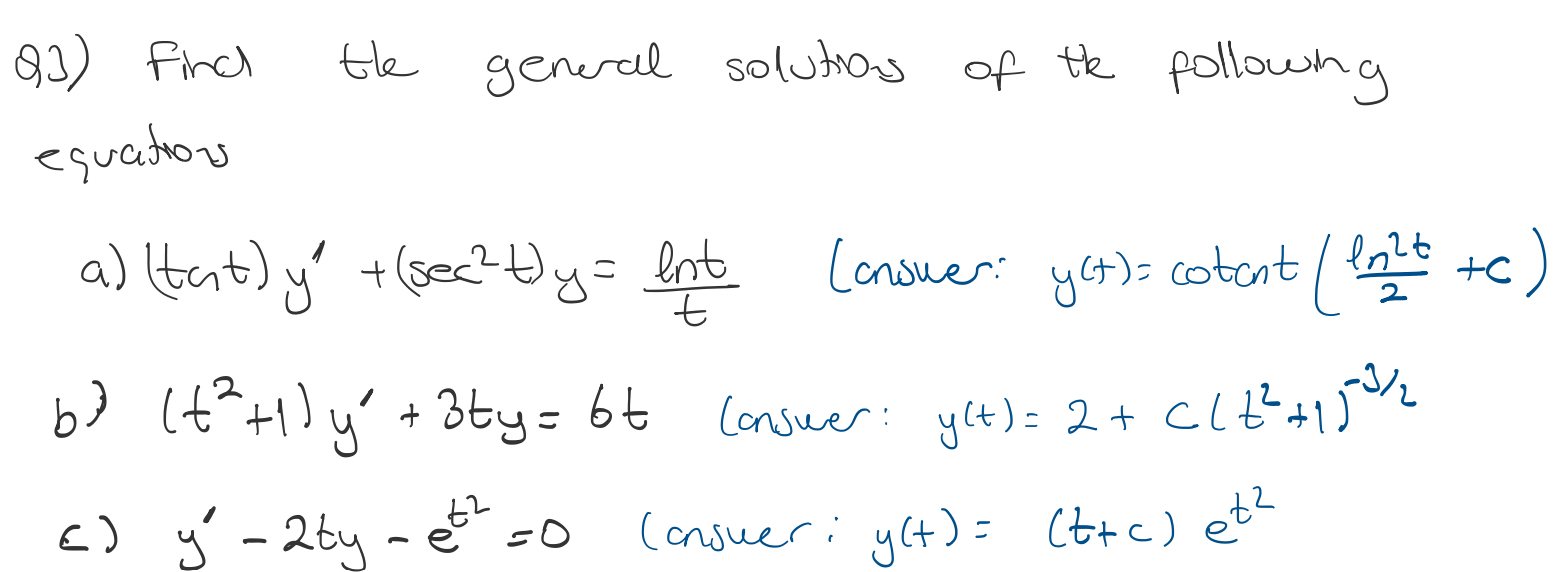 Q3) Find the general solutions of the following
equations
a) (tant) y' + (sec²t) y = lnt/t (answer: y(t) = cotant (ln²t/2 + c)
b) (t²+1) y' + 3ty = 6t (answer: y(t) = 2 + c(t²+1)^-3/2
c) y' - 2ty - e^t² = 0 (answer: y(t) = (t+c) e^t²